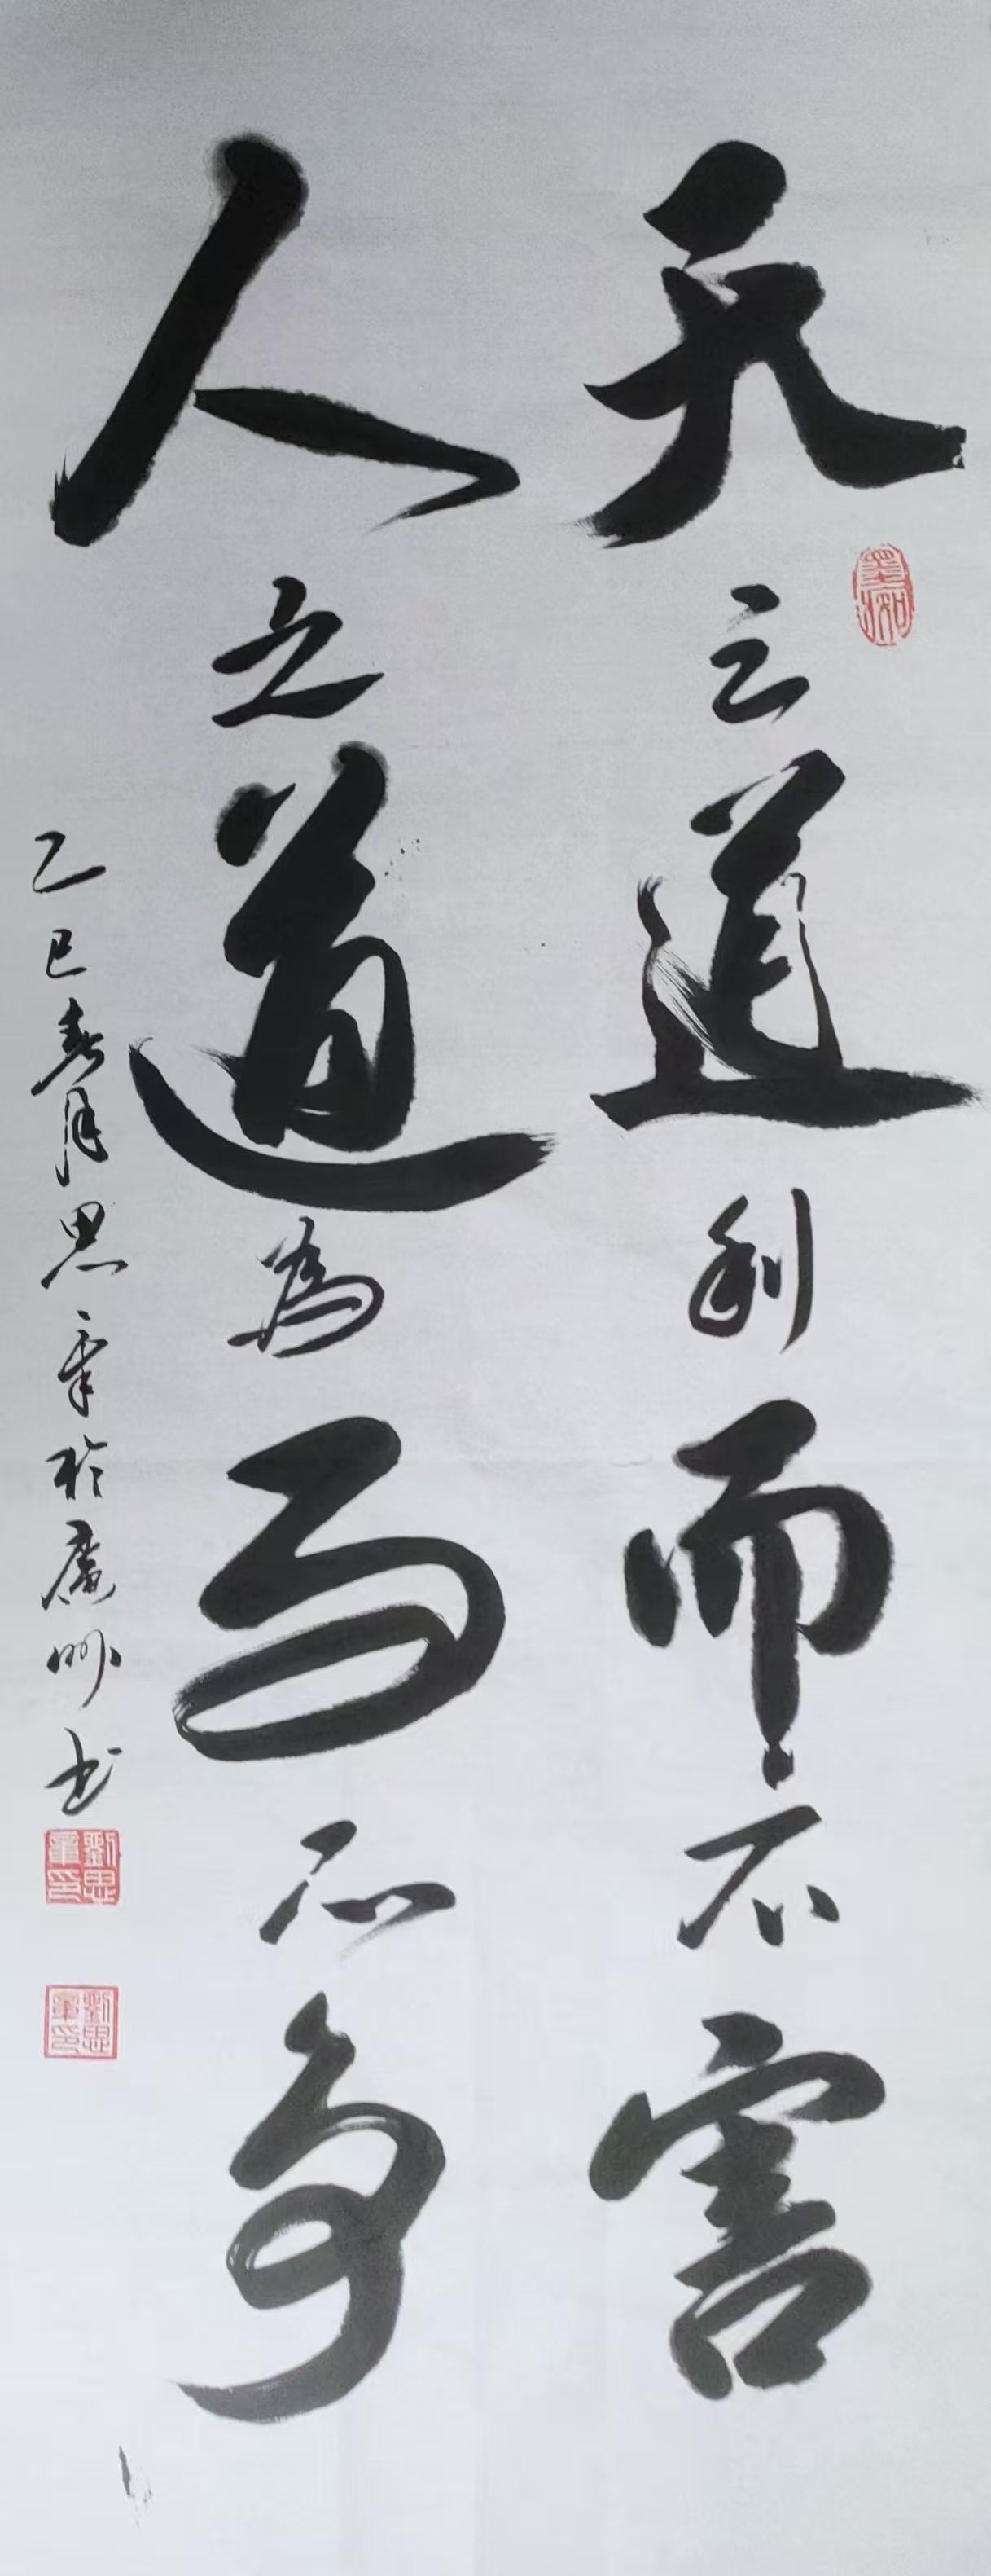 天之道利而不害
人之道為而不争
乙巳春月思章於廣州书